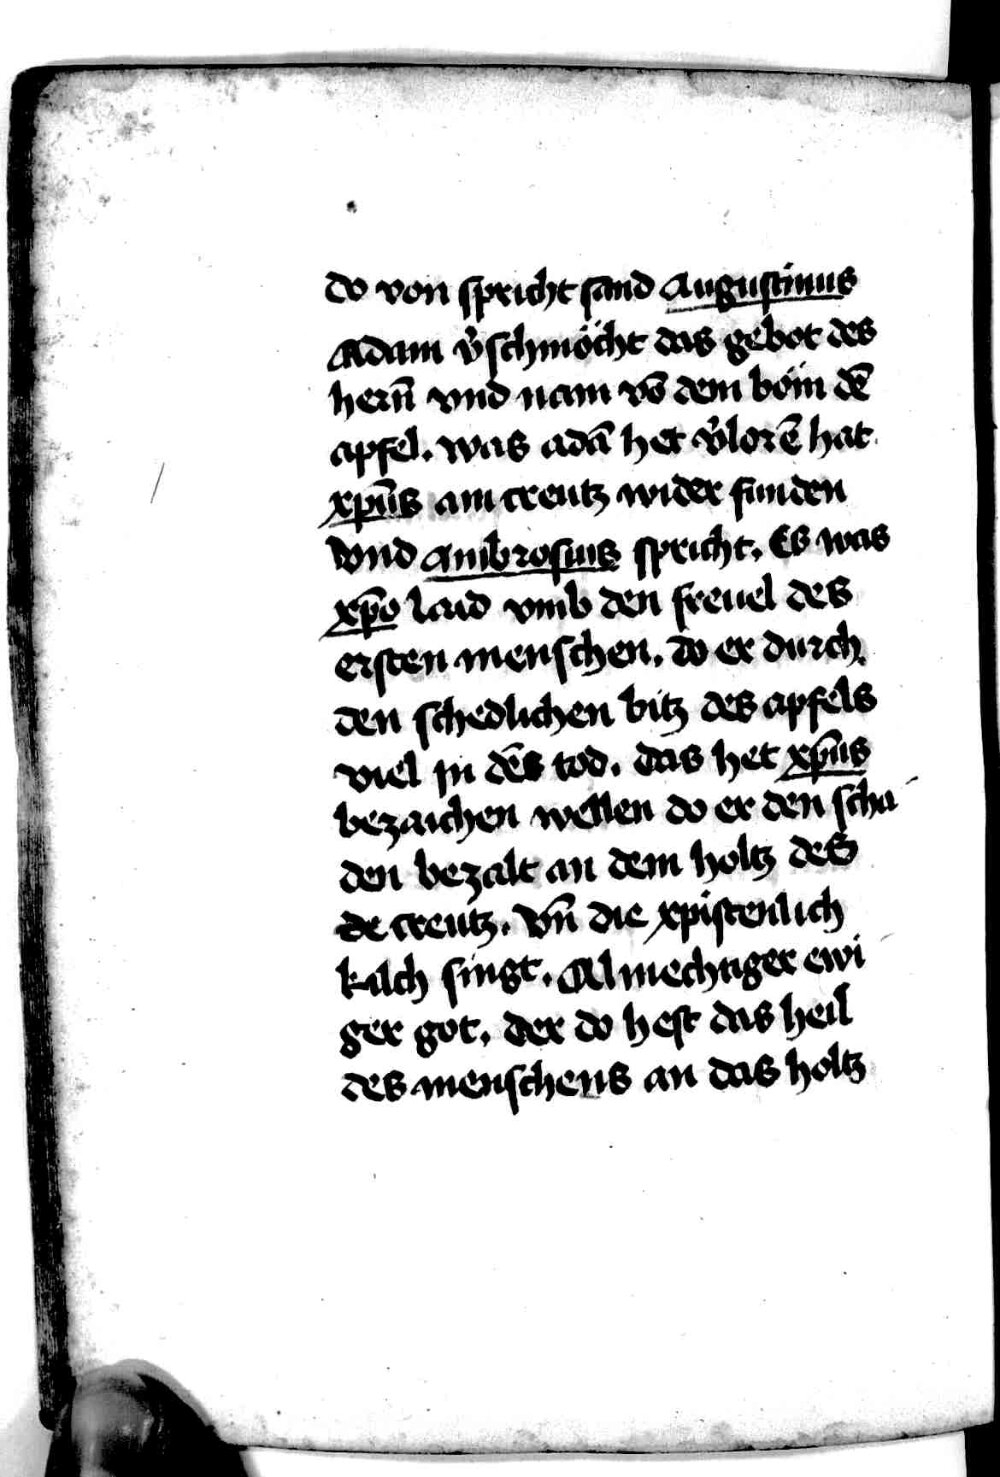 do von spricht sand Augustinus
Adam v̉schmöcht das gebot des
hern̄ vnd nam vō dem böin dē
apfel. was adā het v̉lorē hat
xp̄us am creutz wider funden
Vnd Ambrosius spricht. Es was
xp̄o laid vmb den freuel des
ersten menschen. do er durch
den schedlichen bitz des apfels
viel jn dēs tod. das het xp̄us
bezaichen wellen do er den scha
den bezalt an dem holtz des
de creutz. Vn̄ die xpistenlich
kilch singt. Almechtiger ewi
ger got. der do hest das heil
des menschens an das holtz